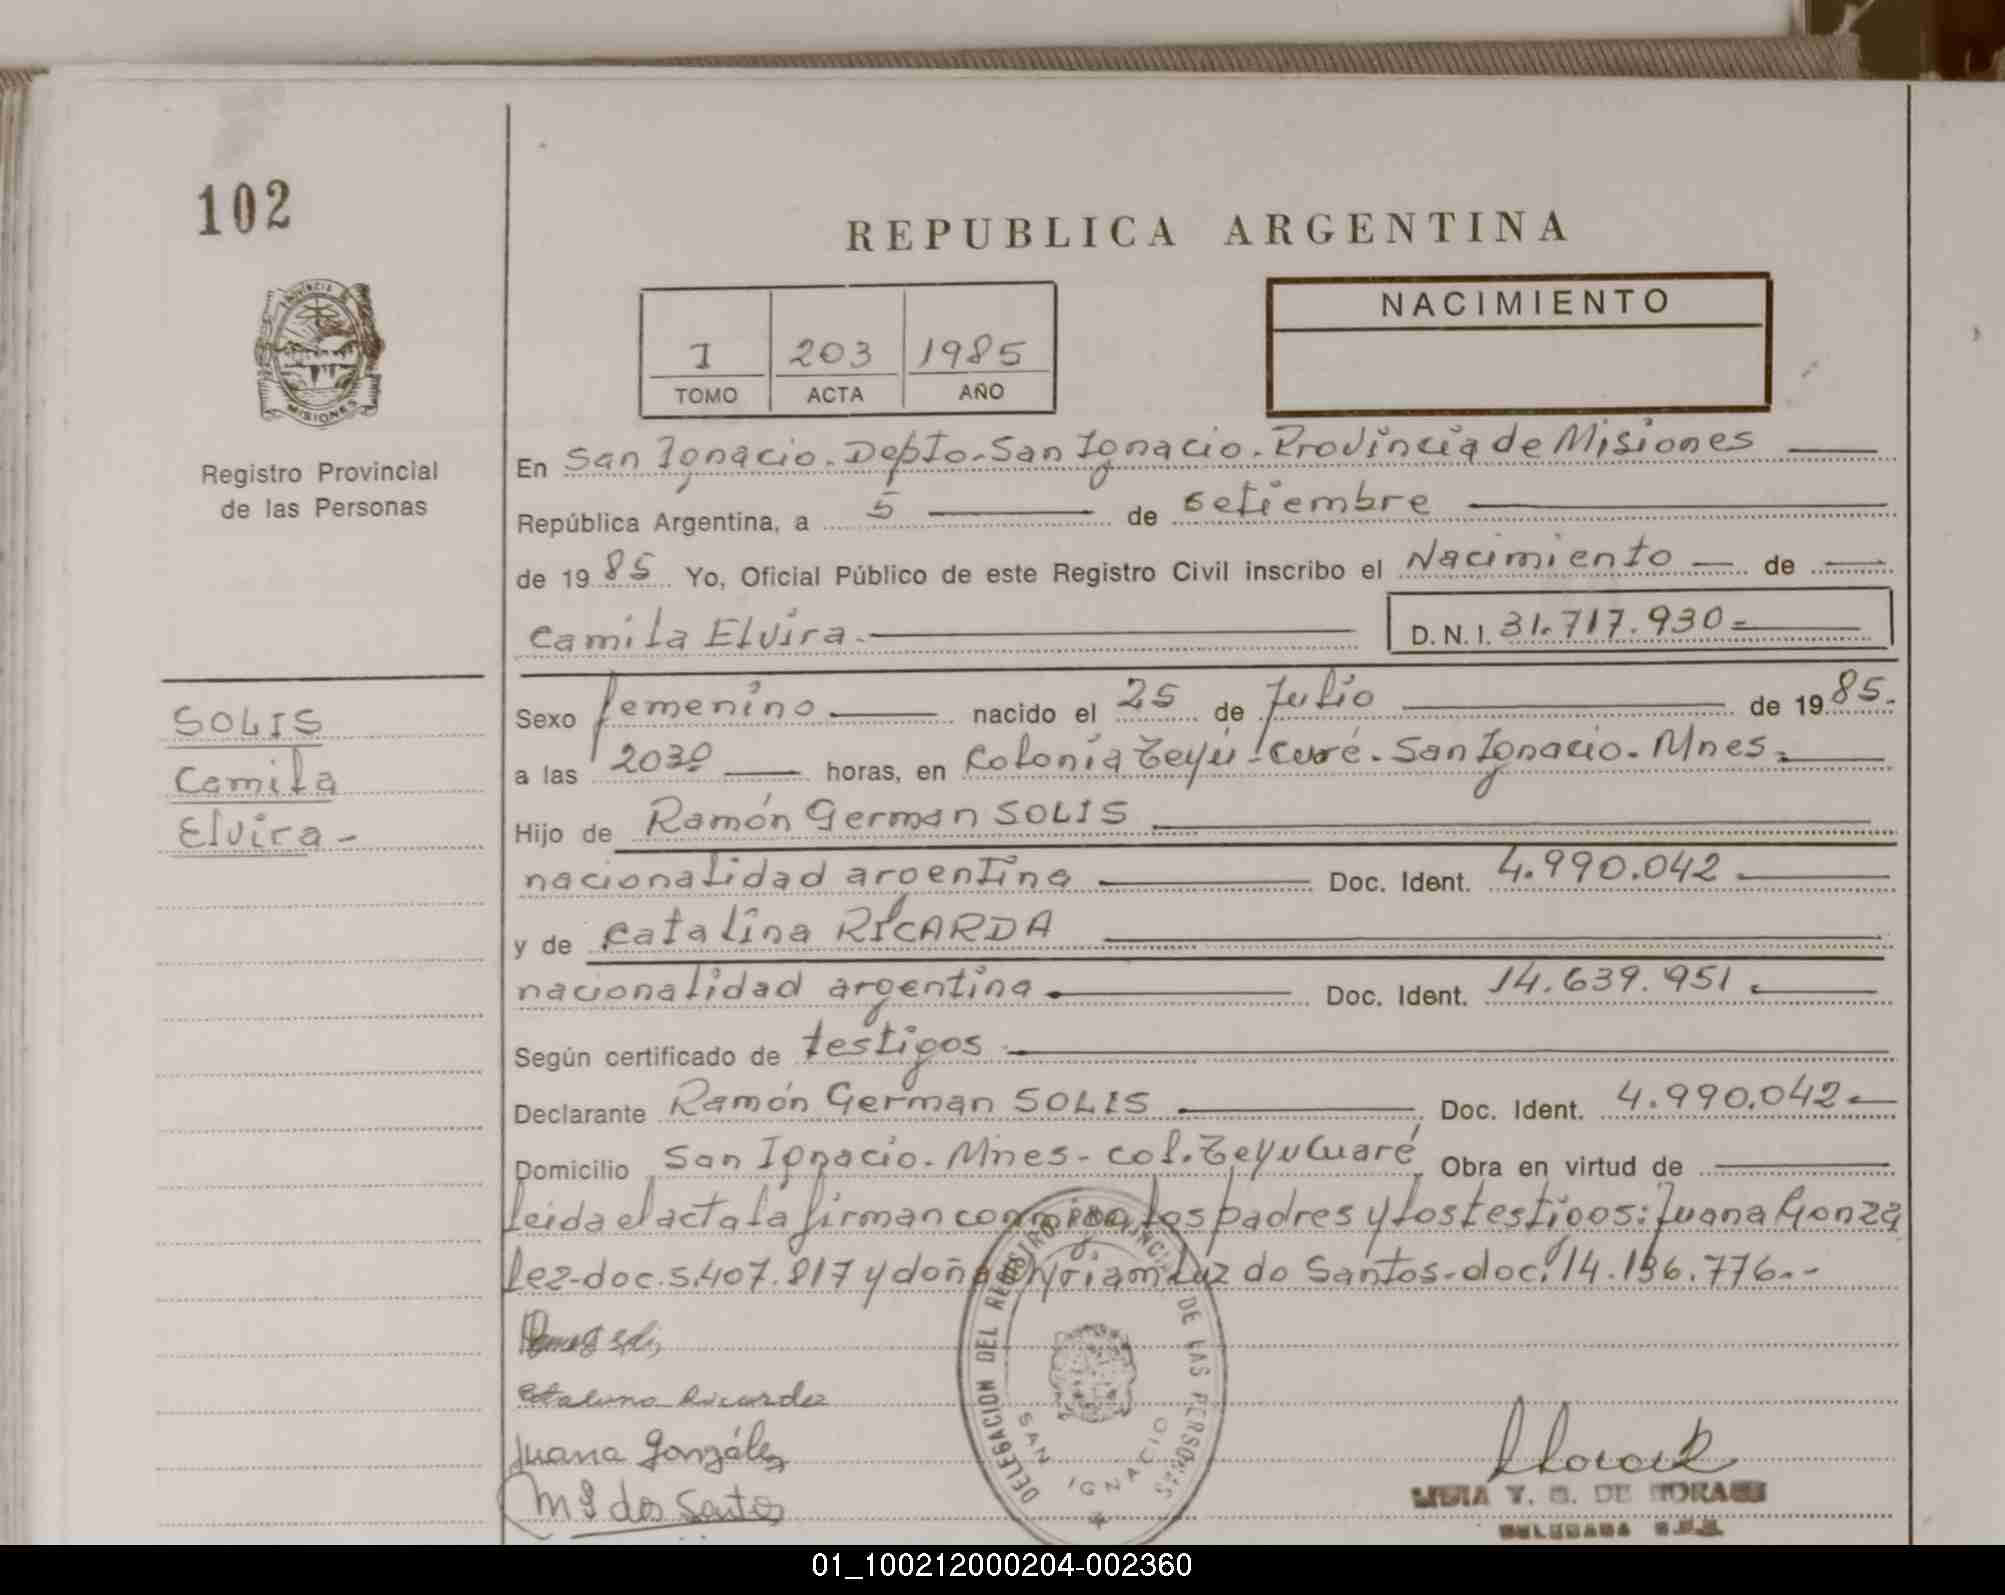 102
REPUBLICA ARGENTINA
PROVINCIA DE
MISIONES
Registro Provincial
de las Personas
I 203 1985
TOMO ACTA AÑO
NACIMIENTO
En San Ignacio. Depto. San Ignacio. Provincia de Misiones
República Argentina, a 5 de setiembre
de 19 85 Yo, Oficial Público de este Registro Civil inscribo el Nacimiento de
Camila Elvira.
D. N. I. 31.717.930-
SOLIS
Camila
Elvira-
Sexo femenino nacido el 25 de Julio de 19 85.
a las 2030 horas, en Colonia Teyú-Cuaré. San Ignacio. Mnes.
Hijo de Ramón German SOLIS
nacionalidad argentina Doc. Ident. 4.990.042
y de Catalina RICARDA
nacionalidad argentina Doc. Ident. 14.639.951.
Según certificado de testigos
Declarante Ramón German SOLIS Doc. Ident. 4.990.042
Domicilio San Ignacio. Mnes- Col. TeyuCuaré Obra en virtud de
leida el acta la firman conmigo, los padres y los testigos: Juana Gonza
lez-doc. 5.407.817 y doña Myriam Luz do Santos-doc. 14.136.776.-
Catalina Ricarda
Juana González
M L dos Santos
DELEGACION DEL REGISTRO PROVINCIAL DE LAS PERSONAS
SAN IGNACIO
DE MORAES
DELEGADA
01_100212000204-002360